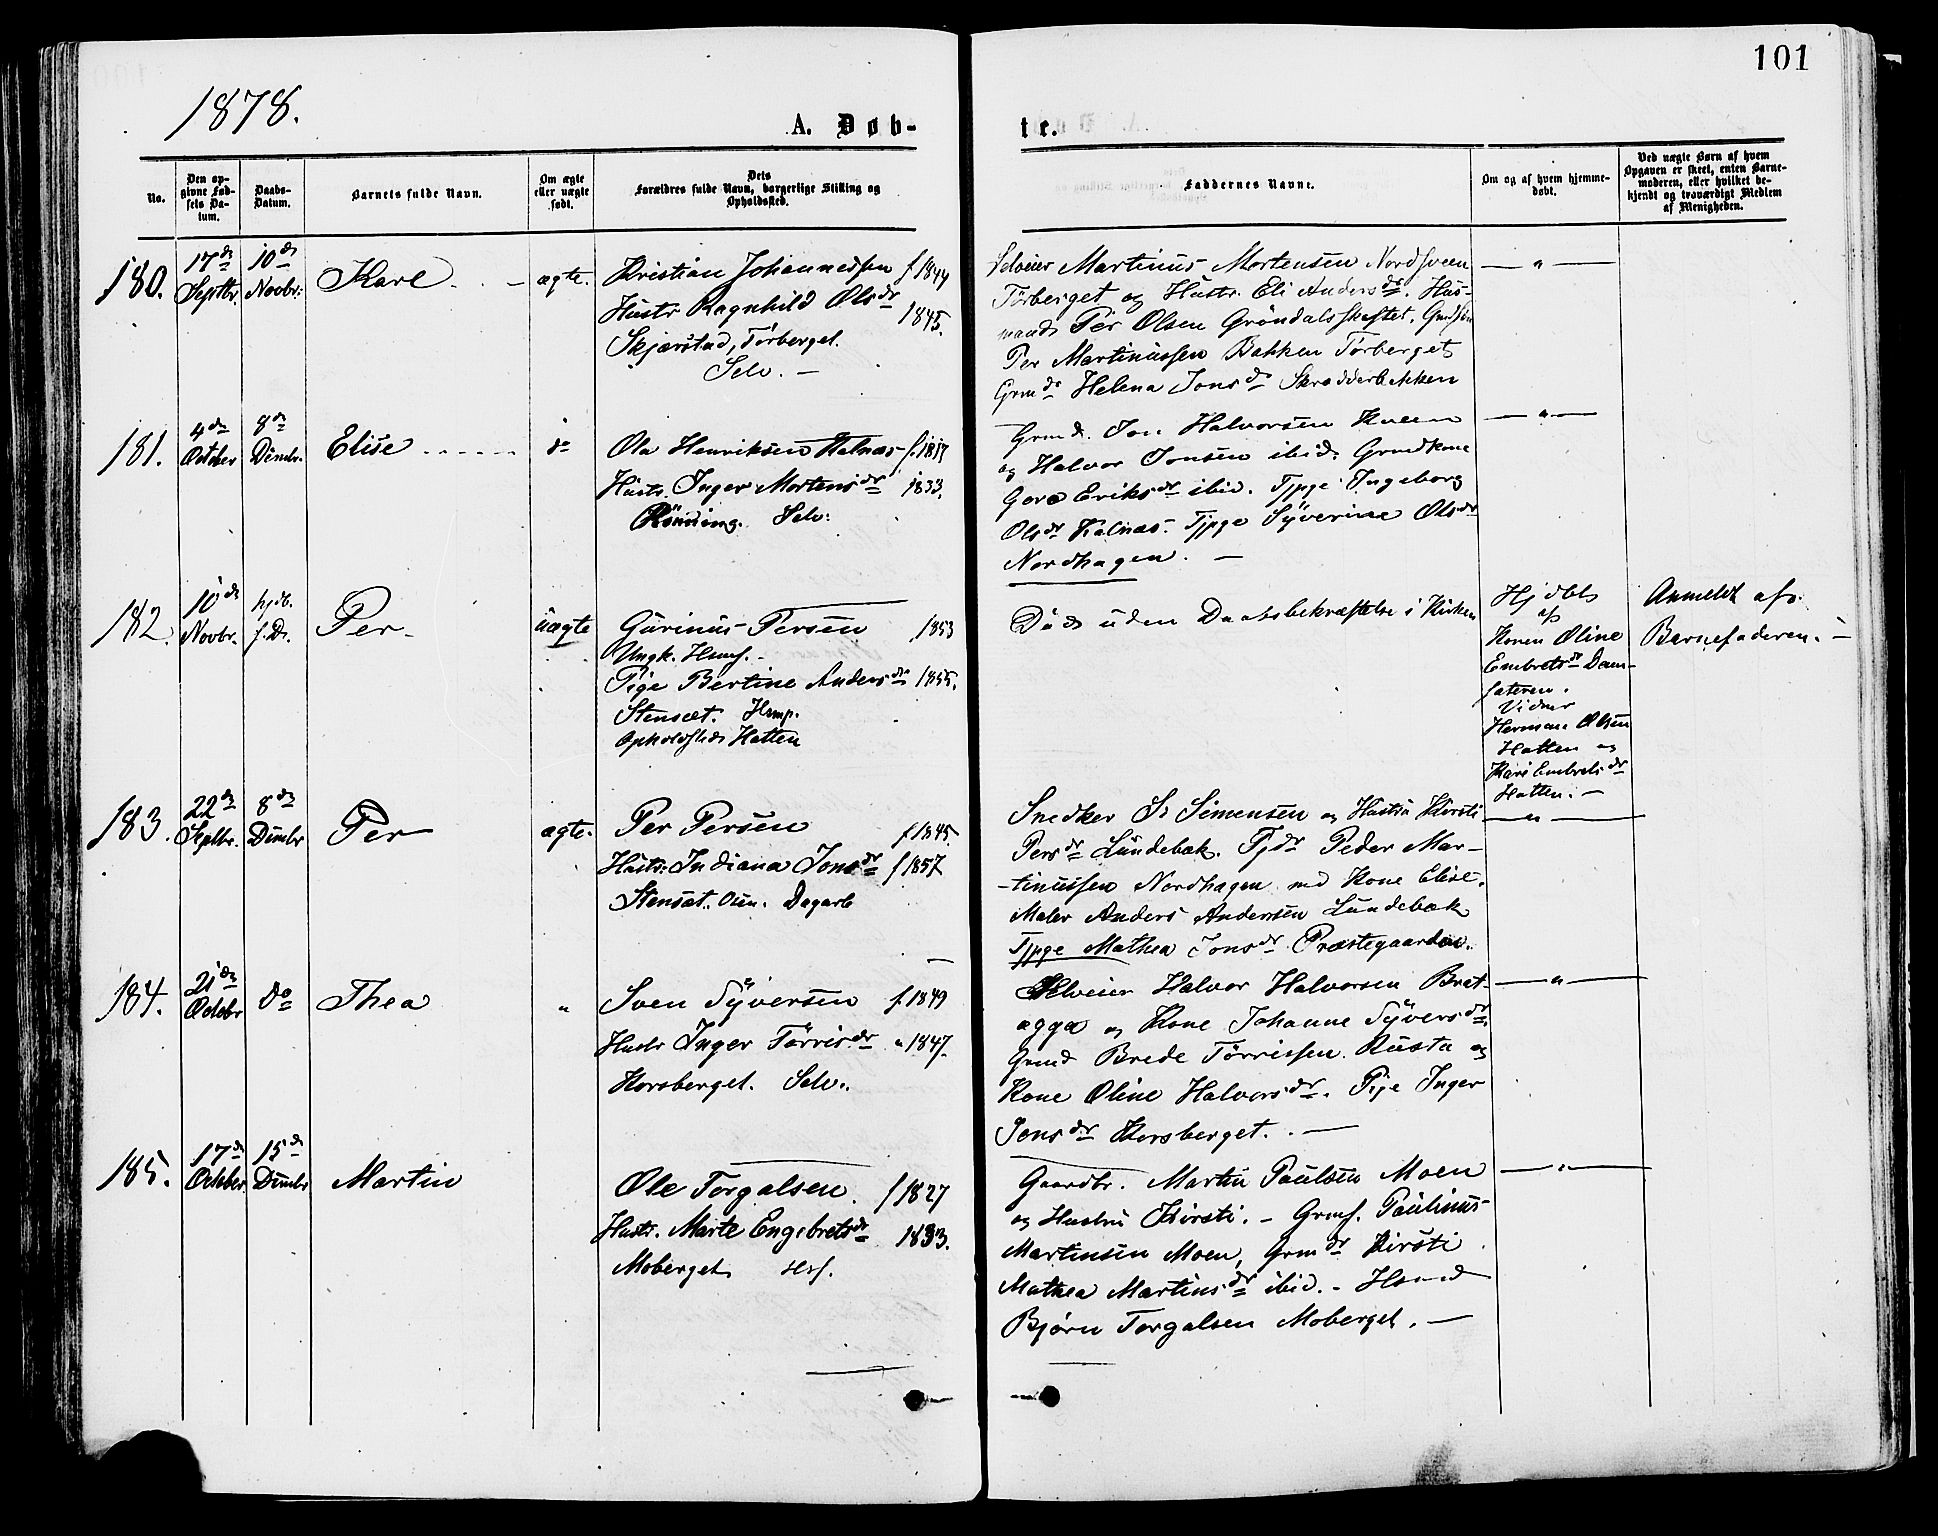 101
1878.
A. Døb-
te.
No.
Den op-
givne Fød-
sels Da-
tum.
Daabs-
Datum.
Barnets fulde Navn.
Om ægte
eller uægte
født.
Dets
Forældres fulde Navn, borgerlige Stilling og
Opholdssted.
Faddernes Navne.
Om og af hvem hjemme-
døbt.
Ved uægte Børn af hvem
Opgaven er skeet, enten Barne-
moderen, eller hvilket be-
kjendt og troværdigt Medlem
af Menigheden.
180.
17de
Septbr.
10de
Novbr:
Karl
ægte.
Kristian Johannessen f 1844
Hustr Ragnhild Olsdr 1845.
Skjærstad, Tørberget.
Selv. —
Selveier Martinus Mortensen Nordsveen
Tørberget og Hustr. Eli Andersdr. Hus-
mand Per Olsen Gröndalsskeftet.
Per Martinussen Bakken Tørberget
Grmdr Helena Jonsdr Skrædderbakken
— " —
181.
4de
October
8de
Dcmbr.
Elise
do
Ola Henriksen Kalnæs f. 1817
Hustr. Inger Mortensdr 1833.
Rönning. Selv:
Grmd. Jon Halvorsen Kveen
og Halvor Jonsen ibid. Grmdkone
Goro Eriksdr ibid. Tjpge Ingeborg
Olsdr Kalnæs. Tjpge Syverine Olsdr
Nordhagen. —
— " —
182.
10de
Novbr.
hjdb.
f. D.
Per
uægte
Gurinus Persen 1853
Ungk. Hamf.
Pige Bertine Andersdr 1855.
Stensæt. Hsmp.
Opholdssted Hatten
Død uden Daabsbekræftelse i Kirken
Hjdbt
af
Konen Oline
Embretsdr Dam-
sæteren.
Vidner
Herman Olsen
Hatten og
Kari Embretsdr
Hatten. —
Anmeldt af
Barnefaderen. —
183.
22de
Septbr.
8de
Dcmbr
Per
ægte.
Per Persen f 1845.
Hustr: Indiana Jonsdr f 1857
Stensæt. Dagarb
Snedker Simensen og Hustru Kirsti
Persdr Lundebæk. Peder Mar-
tinussen Nordhagen med Kone Elise.
Maler Anders Andersen Lundebæk
Tjpge Mathea Jonsdr Præstegaarden.
— " —
184.
21de
Octobr
do
Thea
"
Sven Syversen f. 1849
Hustr Inger Törrisdr " 1847.
Korsberget. Selv.
Selveier Halvor Halvorsen Brat-
agga og Kone Johanne Syversdr.
Grmd Brede Törrissen Rusta og
Kone Oline Halvorsdr. Pige Inger
Jonsdr Korsberget. —
— " —
185.
17de
Octbr.
15de
Dcmbr
Martin
Ole Torgalsen. f 1827
Hustr. Marte Engebretsdr 1833.
Moberget Hsf.
Gaardbr. Martin Paulsen Moen
og Hustru Kirsti. — Grmf. Paulinus
Martinsen Moen, Grmdr Kirsti
Mathea Martinsdr ibid. — Hsmd
Bjørn Torgalsen Moberget. —
— " —